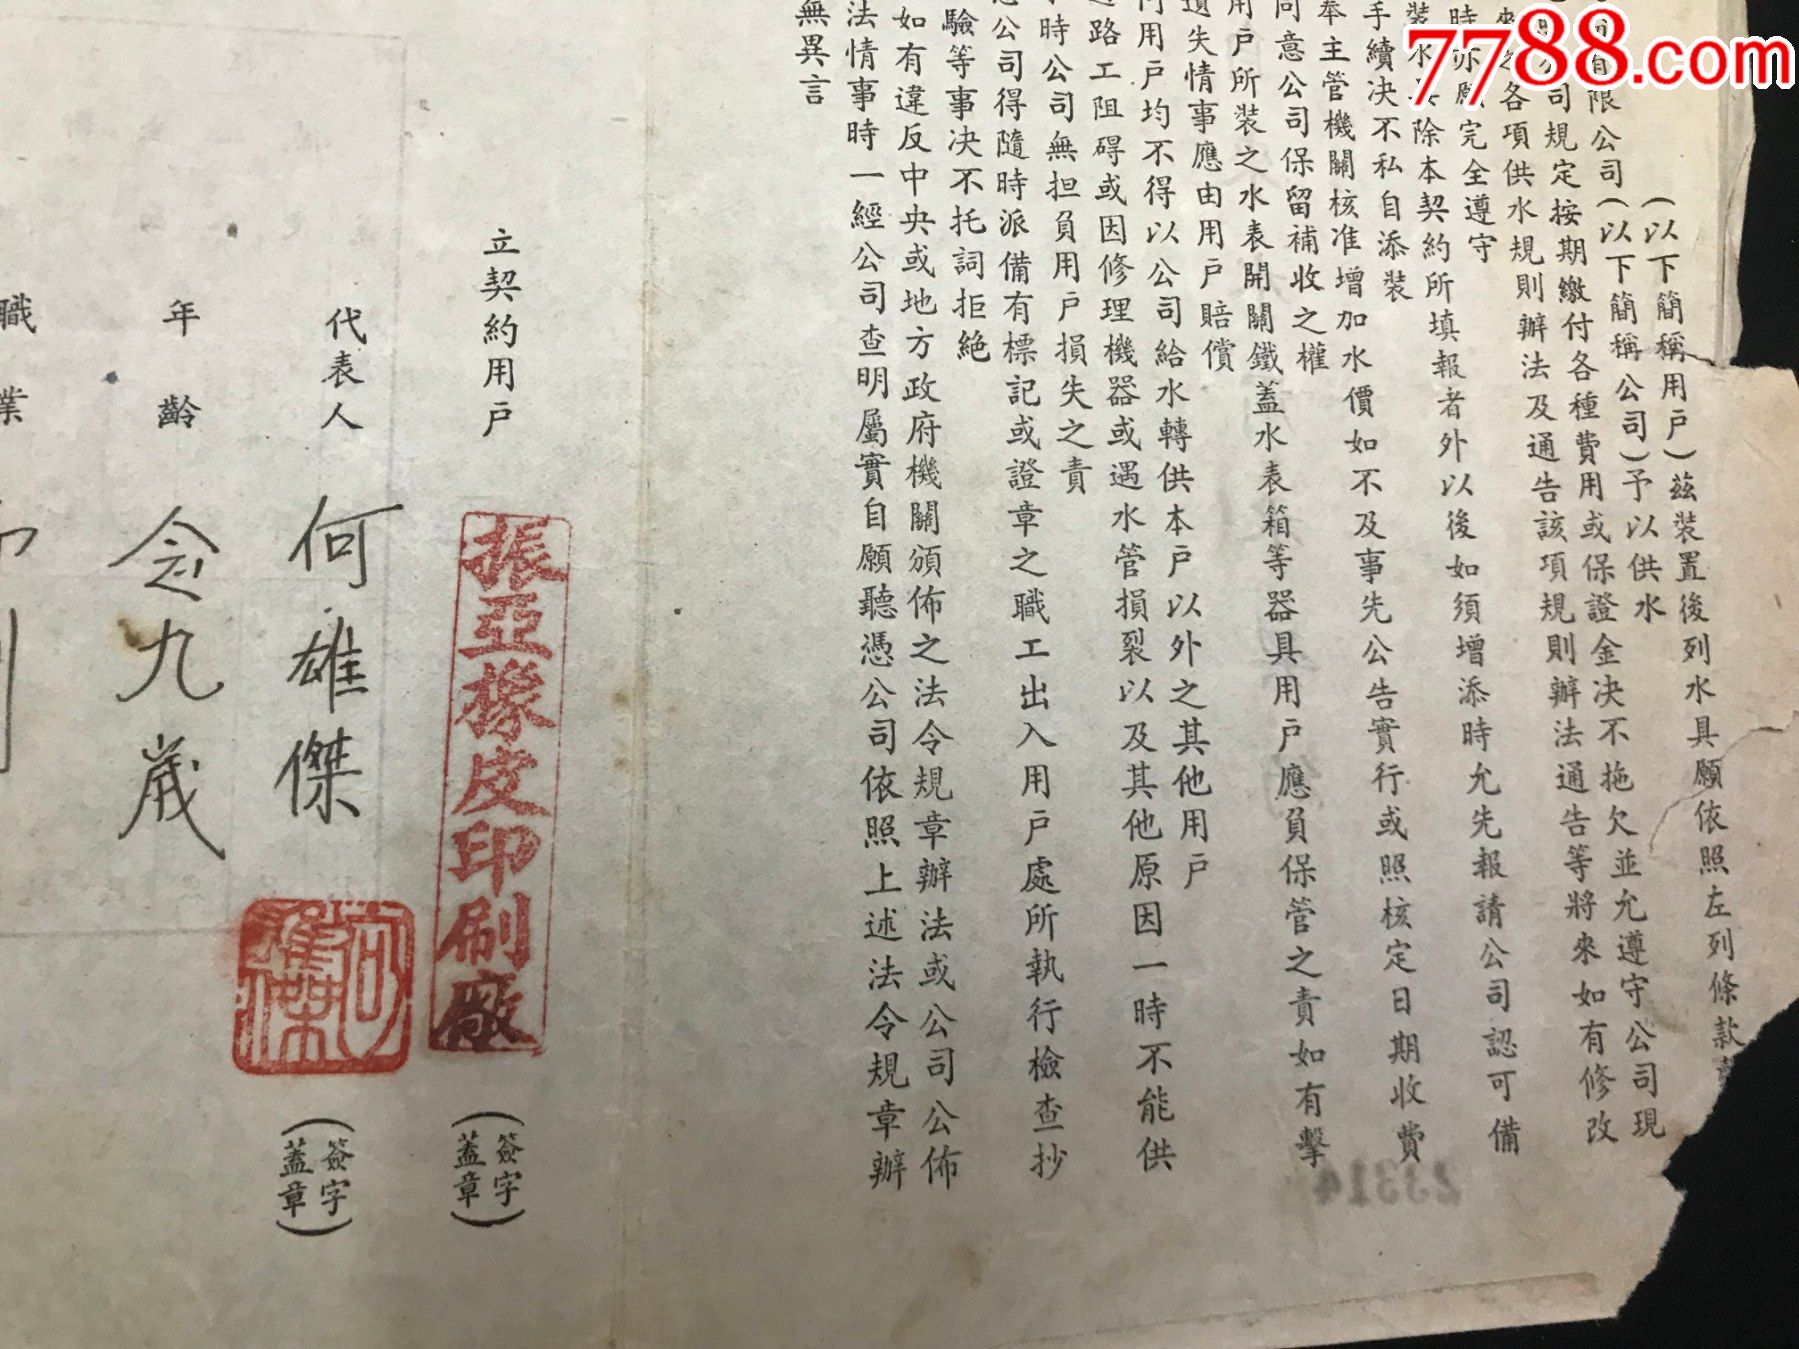 7788.com
(以下簡稱用戶)茲裝置後列水具願依照左列條款
有限公司(以下簡稱公司)予以供水
公司規定按期繳付各種費用或保證金決不拖欠並允遵守公司現
之各項供水規則辦法及通告該項規則辦法通告等將來如有修改
時亦願完全遵守
裝水具除本契約所填報者外以後如須增添時允先報請公司認可備
手續決不私自添裝
奉主管機關核准增加水價如不及事先公告實行或照核定日期收費
同意公司保留補收之權
用戶所裝之水表開關鐵蓋水表箱等器具用戶應負保管之責如有擊
遺失情事應由用戶賠償
用戶均不得以公司給水轉供本戶以外之其他用戶
路工阻碍或因修理機器或遇水管損裂以及其他原因一時不能供
時公司無担負用戶損失之責
公司得隨時派備有標記或證章之職工出入用戶處所執行檢查抄
驗等事決不托詞拒絕
如有違反中央或地方政府機關頒佈之法令規章辦法或公司公佈
法情事時一經公司查明屬實自願聽憑公司依照上述法令規章辦
無異言
立契約用戶 振亞橡皮印刷廠 (簽字蓋章)
代表人 何雄傑 何雄傑 (簽字蓋章)
年齡 念九歲
職業
23314